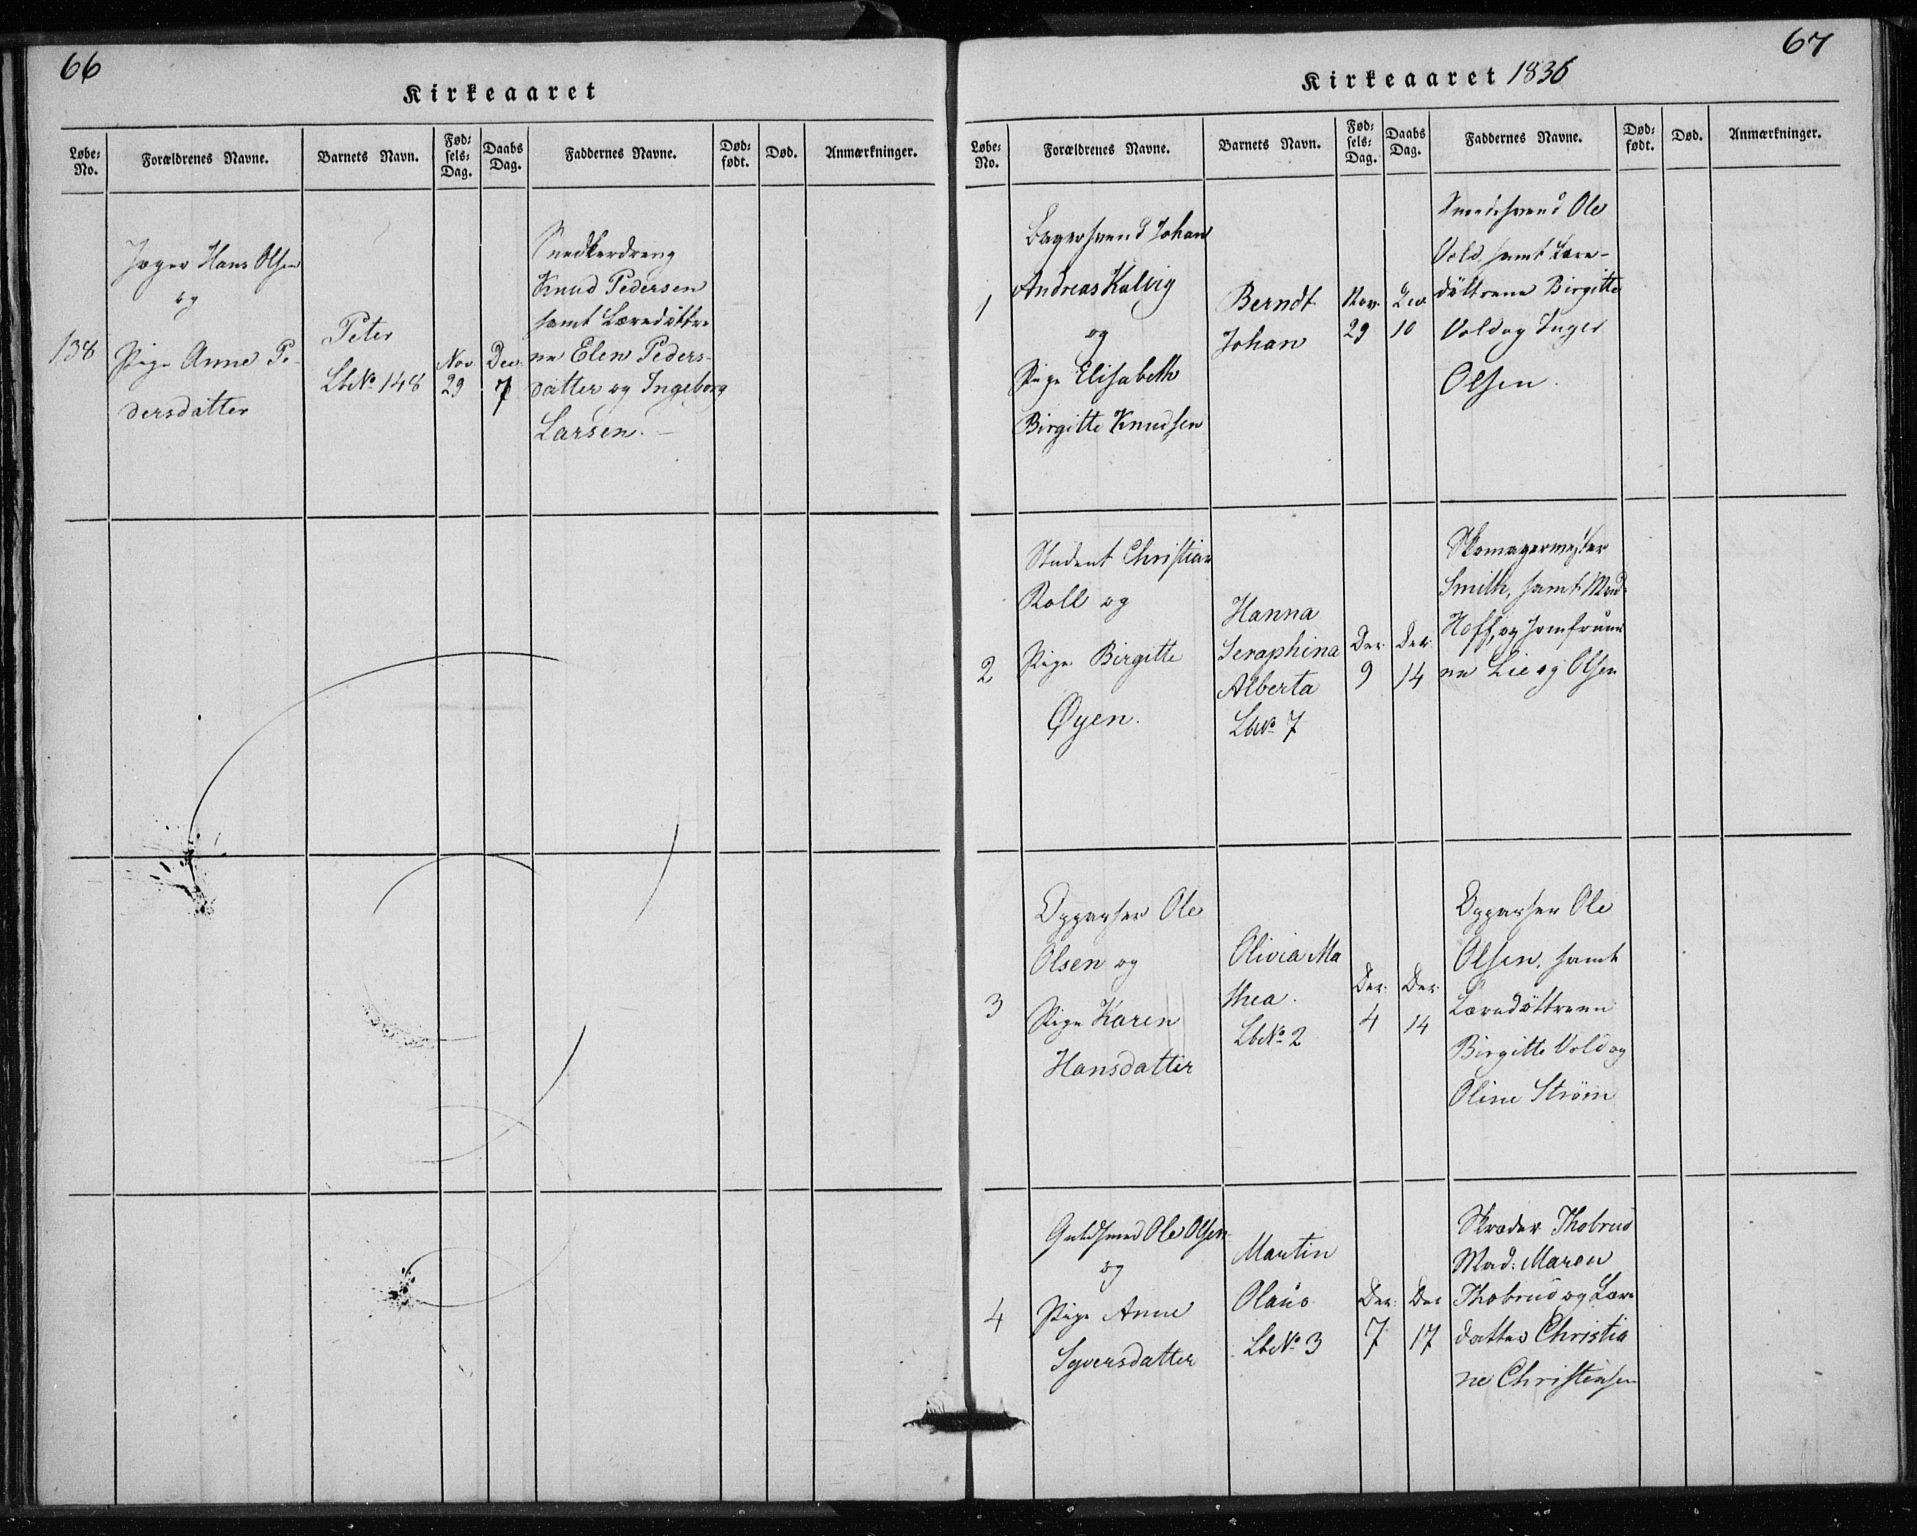 66
Kirkeaaret
Løbe-No.
Forældrenes Navne.
Barnets Navn.
Fød-sels-Dag.
Daabs Dag.
Faddernes Navne.
Død-født.
Død.
Anmærkninger.
138
Jæger Hans Olsen
og
Pige Anne Pe-
dersdatter
Peter
LbNo 148
Nov.
29
Dec.
7
Snedkerdreng
Knud Pedersen
samt Læredöttre
ne Elen Peders-
datter og Ingeborg
Larsen.
67
Kirkeaaret 1836
Løbe-No.
Forældrenes Navne.
Barnets Navn.
Fød-sels-Dag.
Daabs Dag.
Faddernes Navne.
Død-født.
Død.
Anmærkninger.
1
Bagersvend Johan
Andreas Kalvig
og
Pige Elisabeth
Birgitte Knudsen
Berndt
Johan
Nov.
29
Dec.
10
Smedesvend Ole
Vold, samt Lære-
döttrene Birgitte
Vold og Inger
Olsen.
2
Student Christian
Roll og
Pige Birgitte
Øyen.
Hanna
Seraphina
Alberta
LbNo 7
Dec.
9
Dec.
14
Skomagermester
Smith, samt Mad.
Hoff, og Jomfrue
ne Lie og Olsen
3
Oppasser Ole
Olsen og
Pige Karen
Hansdatter
Olivia Ma
thea.
LbNo 2
Dec.
4
Dec.
14
Oppasser Ole
Olsen, samt
Læredöttrene
Birgitte Vold og
Oline Strøm
4
Guldsmed Ole Olsen
og
Pige Anne
Syversdatter
Martin
Olaus
LbNo 3
Dec.
7
Dec
17
Skræder Thobrud
Mad. Maren
Thobrud og Lære
datter Christia
ne Christensen